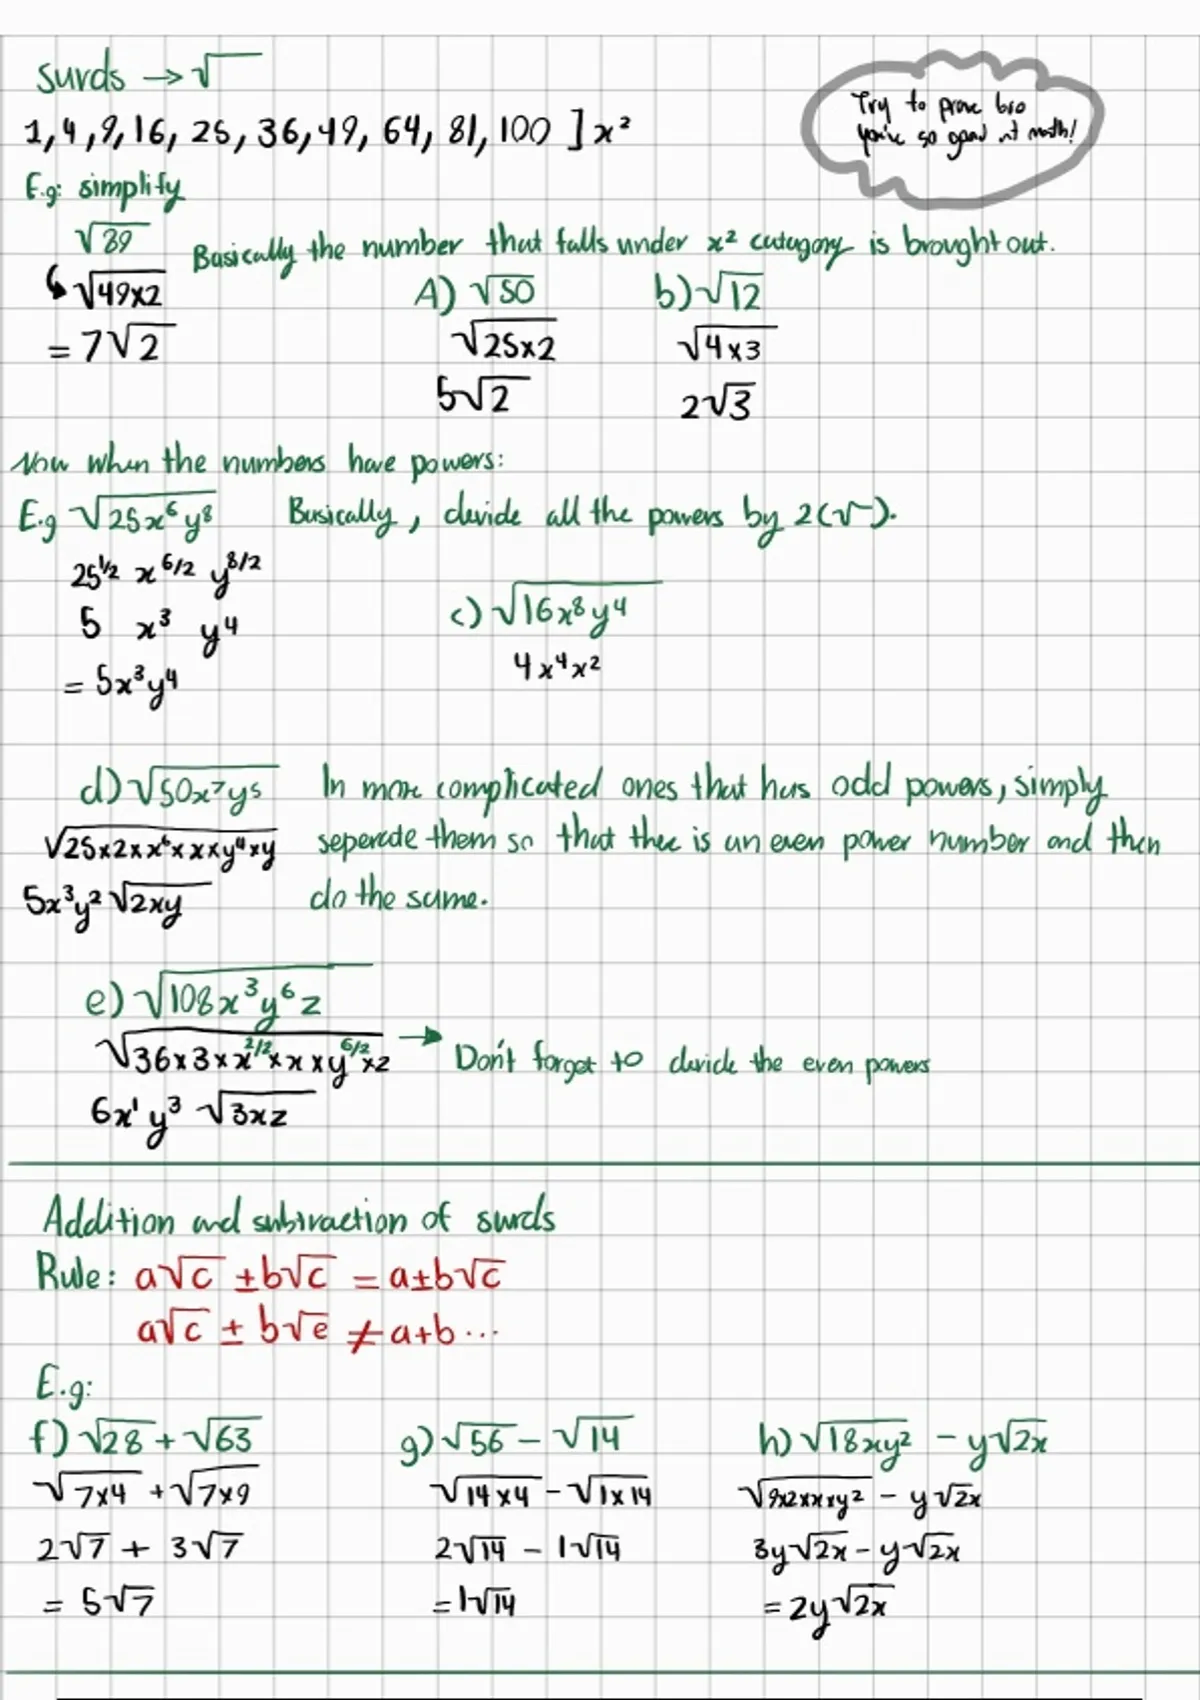 surds → √
1, 4, 9, 16, 25, 36, 49, 64, 81, 100 ] x²
Try to prove bro
you're so good at math!
E.g: simplify
√89
Basically the number that falls under x² catagory is brought out.
√49x2
= 7√2
A) √50
√25x2
5√2
b) √12
√4x3
2√3
Now when the numbers have powers:
E.g √25x⁶y⁸
Basically, devide all the powers by 2(√).
25^1/2 x^6/2 y^8/2
5 x³ y⁴
= 5x³y⁴
c) √16x⁸y⁴
4x⁴x²
d) √50x⁷y⁵
In more complicated ones that has odd powers, simply
√25x2xx⁶xxxy⁴xy
seperate them so that thee is an even power number and then
5x³y² √2xy
do the same.
e) √108x³y⁶z
√36x3xx^2/2xxxy^6/2xz → Don't forget to devide the even powers
6x¹y³ √3xz
Addition and subtraction of surds
Rule: a√c ± b√c = a±b√c
a√c ± b√e ≠ a+b...
E.g:
f) √28 + √63
√7x4 + √7x9
2√7 + 3√7
= 5√7
g) √56 - √14
√14x4 - √1x14
2√14 - 1√14
= 1√14
h) √18xy² - y√2x
√9x2xxxy² - y√2x
3y√2x - y√2x
= 2y√2x